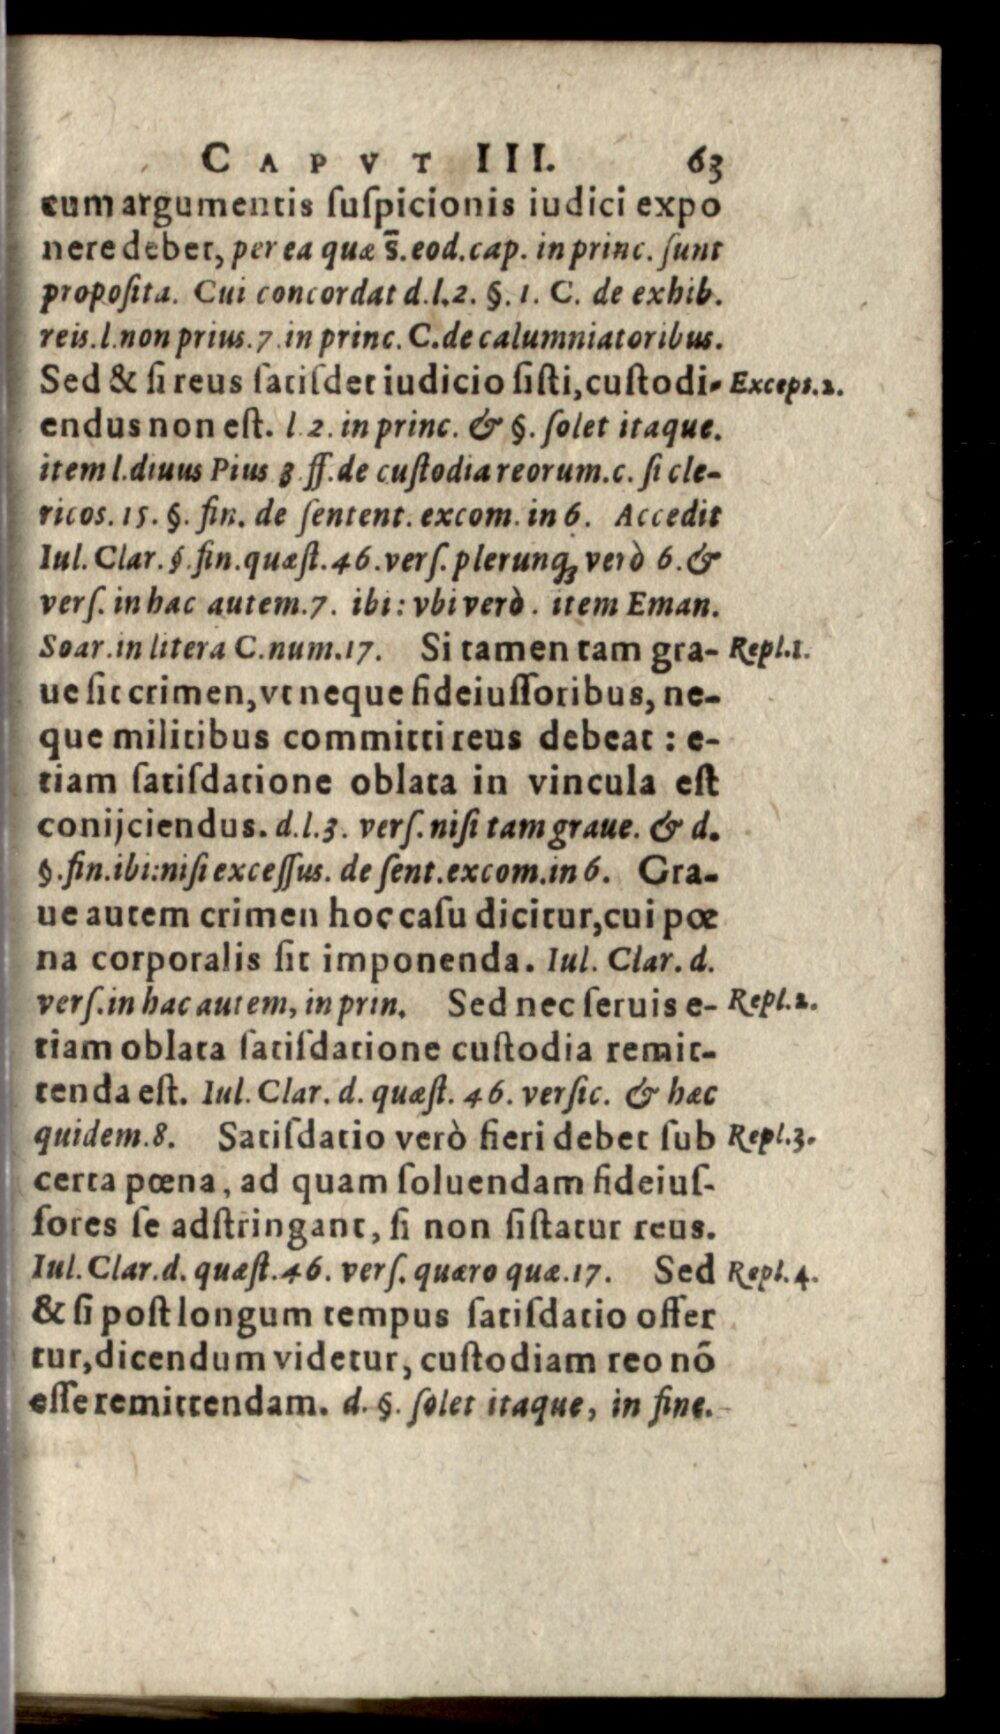 CAPVT III. 63
cum argumentis ſuſpicionis iudici expo
nere debet, per ea quæ s̄. eod. cap. in princ. ſunt
propoſita. Cui concordat d.l.2. §. 1. C. de exhib.
reis. l. non prius. 7. in princ. C. de calumniatoribus.
Sed & ſi reus ſatiſdet iudicio ſiſti, cuſtodi- Except.2.
endus non eſt. l. 2. in princ. & §. ſolet itaque.
item l. diuus Pius 3 ff. de cuſtodia reorum. c. ſi cle-
ricos. 15. §. fin. de ſentent. excom. in 6. Accedit
Iul. Clar. §. fin. quæſt. 46. verſ. plerunq; verò 6. &
verſ. in hac autem. 7. ibi: vbi verò. item Eman.
Soar. in litera C. num. 17. Si tamen tam gra- Repl.1.
ue ſit crimen, vt neque fideiuſſoribus, ne-
que militibus committi reus debeat : e-
tiam ſatiſdatione oblata in vincula eſt
conijciendus. d.l.3. verſ. niſi tam graue. & d.
§. fin. ibi: niſi exceſſus. de ſent. excom. in 6. Gra-
ue autem crimen hoc caſu dicitur, cui pœ
na corporalis ſit imponenda. Iul. Clar. d.
verſ. in hac autem, in prin. Sed nec ſeruis e- Repl.2.
tiam oblata ſatiſdatione cuſtodia remit-
tenda eſt. Iul. Clar. d. quæſt. 46. verſic. & hæc
quidem. 8. Satiſdatio verò fieri debet ſub Repl.3.
certa pœna, ad quam ſoluendam fideiuſ-
ſores ſe adſtringant, ſi non ſiſtatur reus.
Iul. Clar. d. quæſt. 46. verſ. quæro quæ. 17. Sed Repl.4.
& ſi poſt longum tempus ſatiſdatio offer
tur, dicendum videtur, cuſtodiam reo nō
eſſe remittendam. d. §. ſolet itaque, in fine.